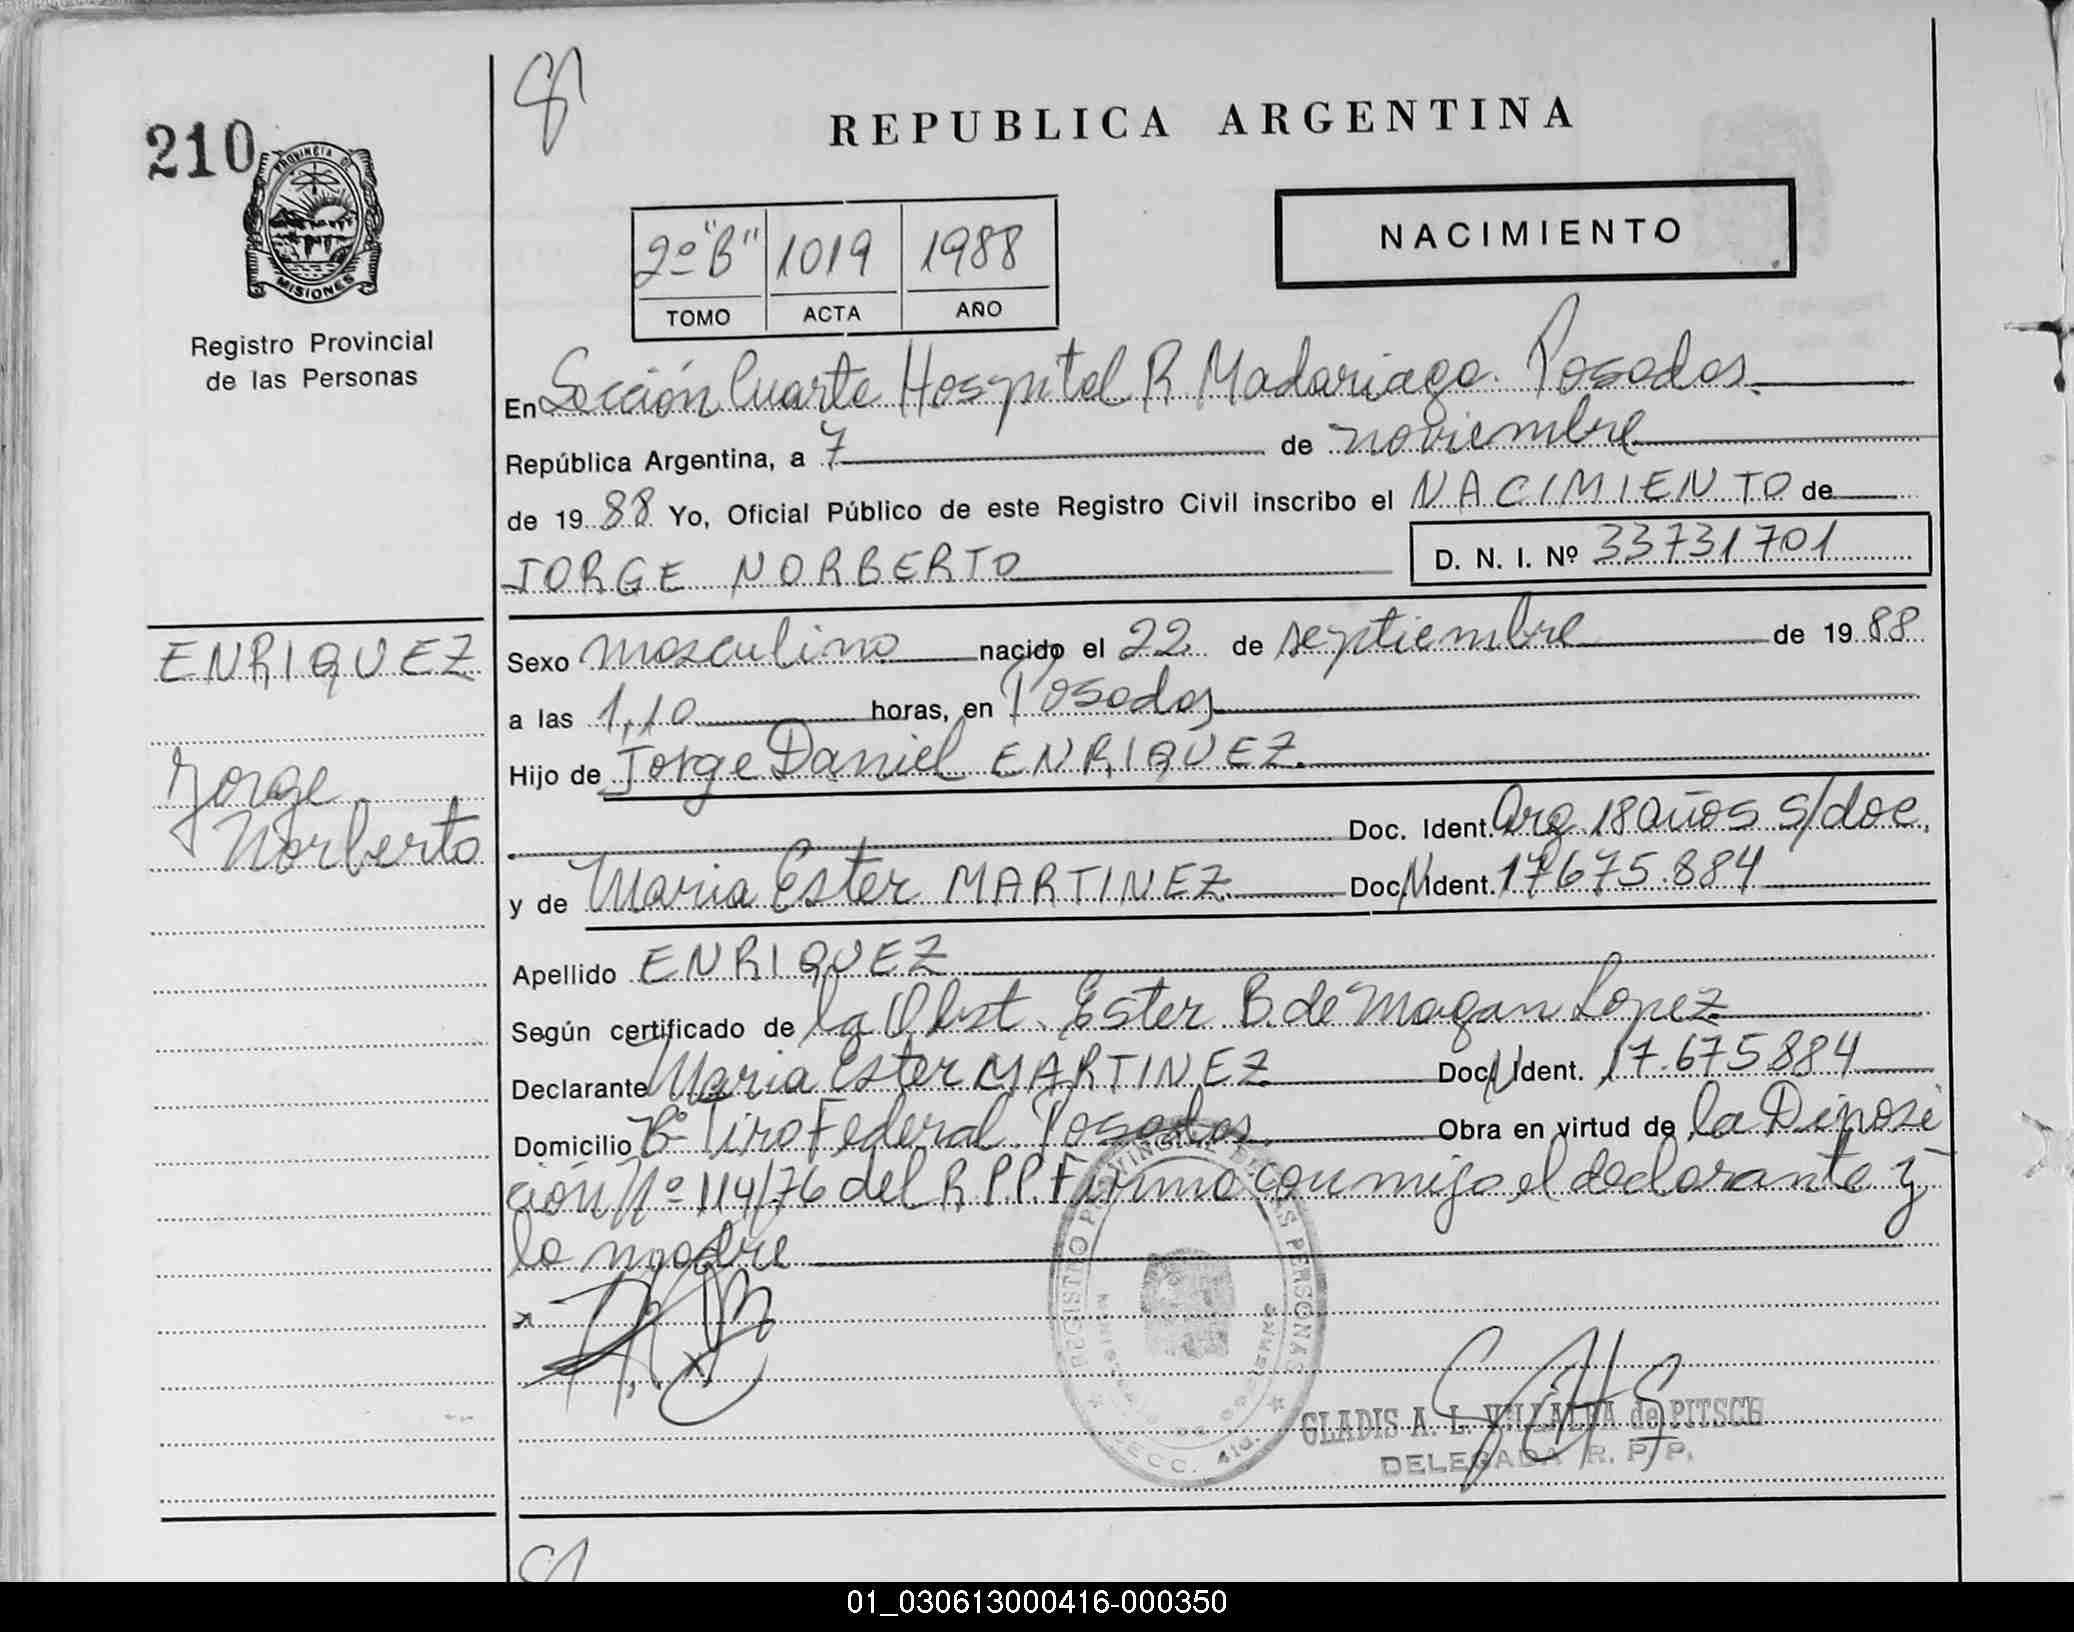 210
PROVINCIA DE
MISIONES
Registro Provincial
de las Personas
REPUBLICA ARGENTINA
2º "B" 1019 1988
TOMO ACTA AÑO
NACIMIENTO
En Sección Cuarta Hospital R Madariaga. Posadas.
República Argentina, a 7 de noviembre
de 1988 Yo, Oficial Público de este Registro Civil inscribo el NACIMIENTO de
JORGE NORBERTO D. N. I. Nº 33731701
ENRIQUEZ
Jorge
Norberto
Sexo masculino nacido el 22 de septiembre de 1988
a las 1,10 horas, en Posadas
Hijo de Jorge Daniel ENRIQUEZ.
Doc. Ident. Arg. 18 años s/doc.
y de Maria Ester MARTINEZ Doc. Ident. 17.675.884
Apellido ENRIQUEZ
Según certificado de la Obst. Ester B. de Magan Lopez
Declarante Maria Ester MARTINEZ Doc. Ident. 17.675884
Domicilio Bº Tiro Federal. Posadas. Obra en virtud de la Diposi
ción Nº 114/76 del R.P.P. Firma conmigo el declarante y
la madre
REGISTRO PROVINCIAL DE LAS PERSONAS
SECC. 4ta.
GLADIS A. L. VILLALBA de PITSCH
DELEGADA R. P. P.
01_030613000416-000350